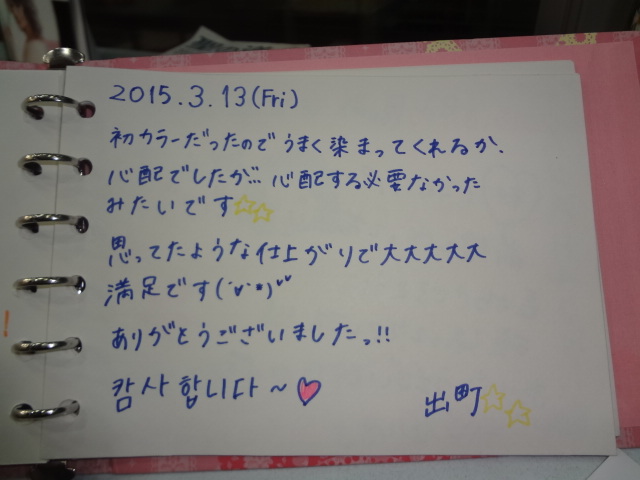 2015.3.13(Fri)
初カラーだったのでうまく染まってくれるか、
心配でしたが… 心配する必要なかった
みたいです☆☆
思ってたような仕上がりで大大大大大
満足です(*´∀`*)♥♥
ありがとうございましたっ!!
캄사합니다~♥
出町☆☆